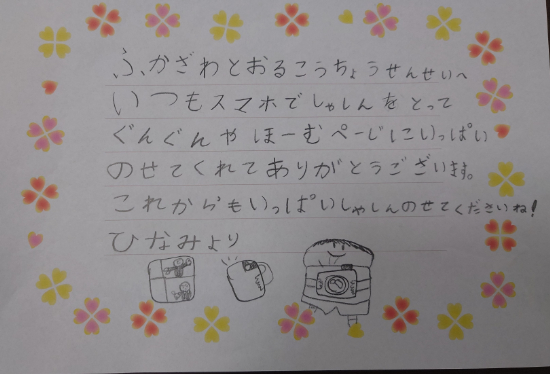 ふかざわとおるこうちょうせんせいへ
いつもスマホでしゃしんをとって
ぐんぐんやほーむぺーじにいっぱい
のせてくれてありがとうございます。
これからもいっぱいしゃしんのせてくださいね!
ひなみより